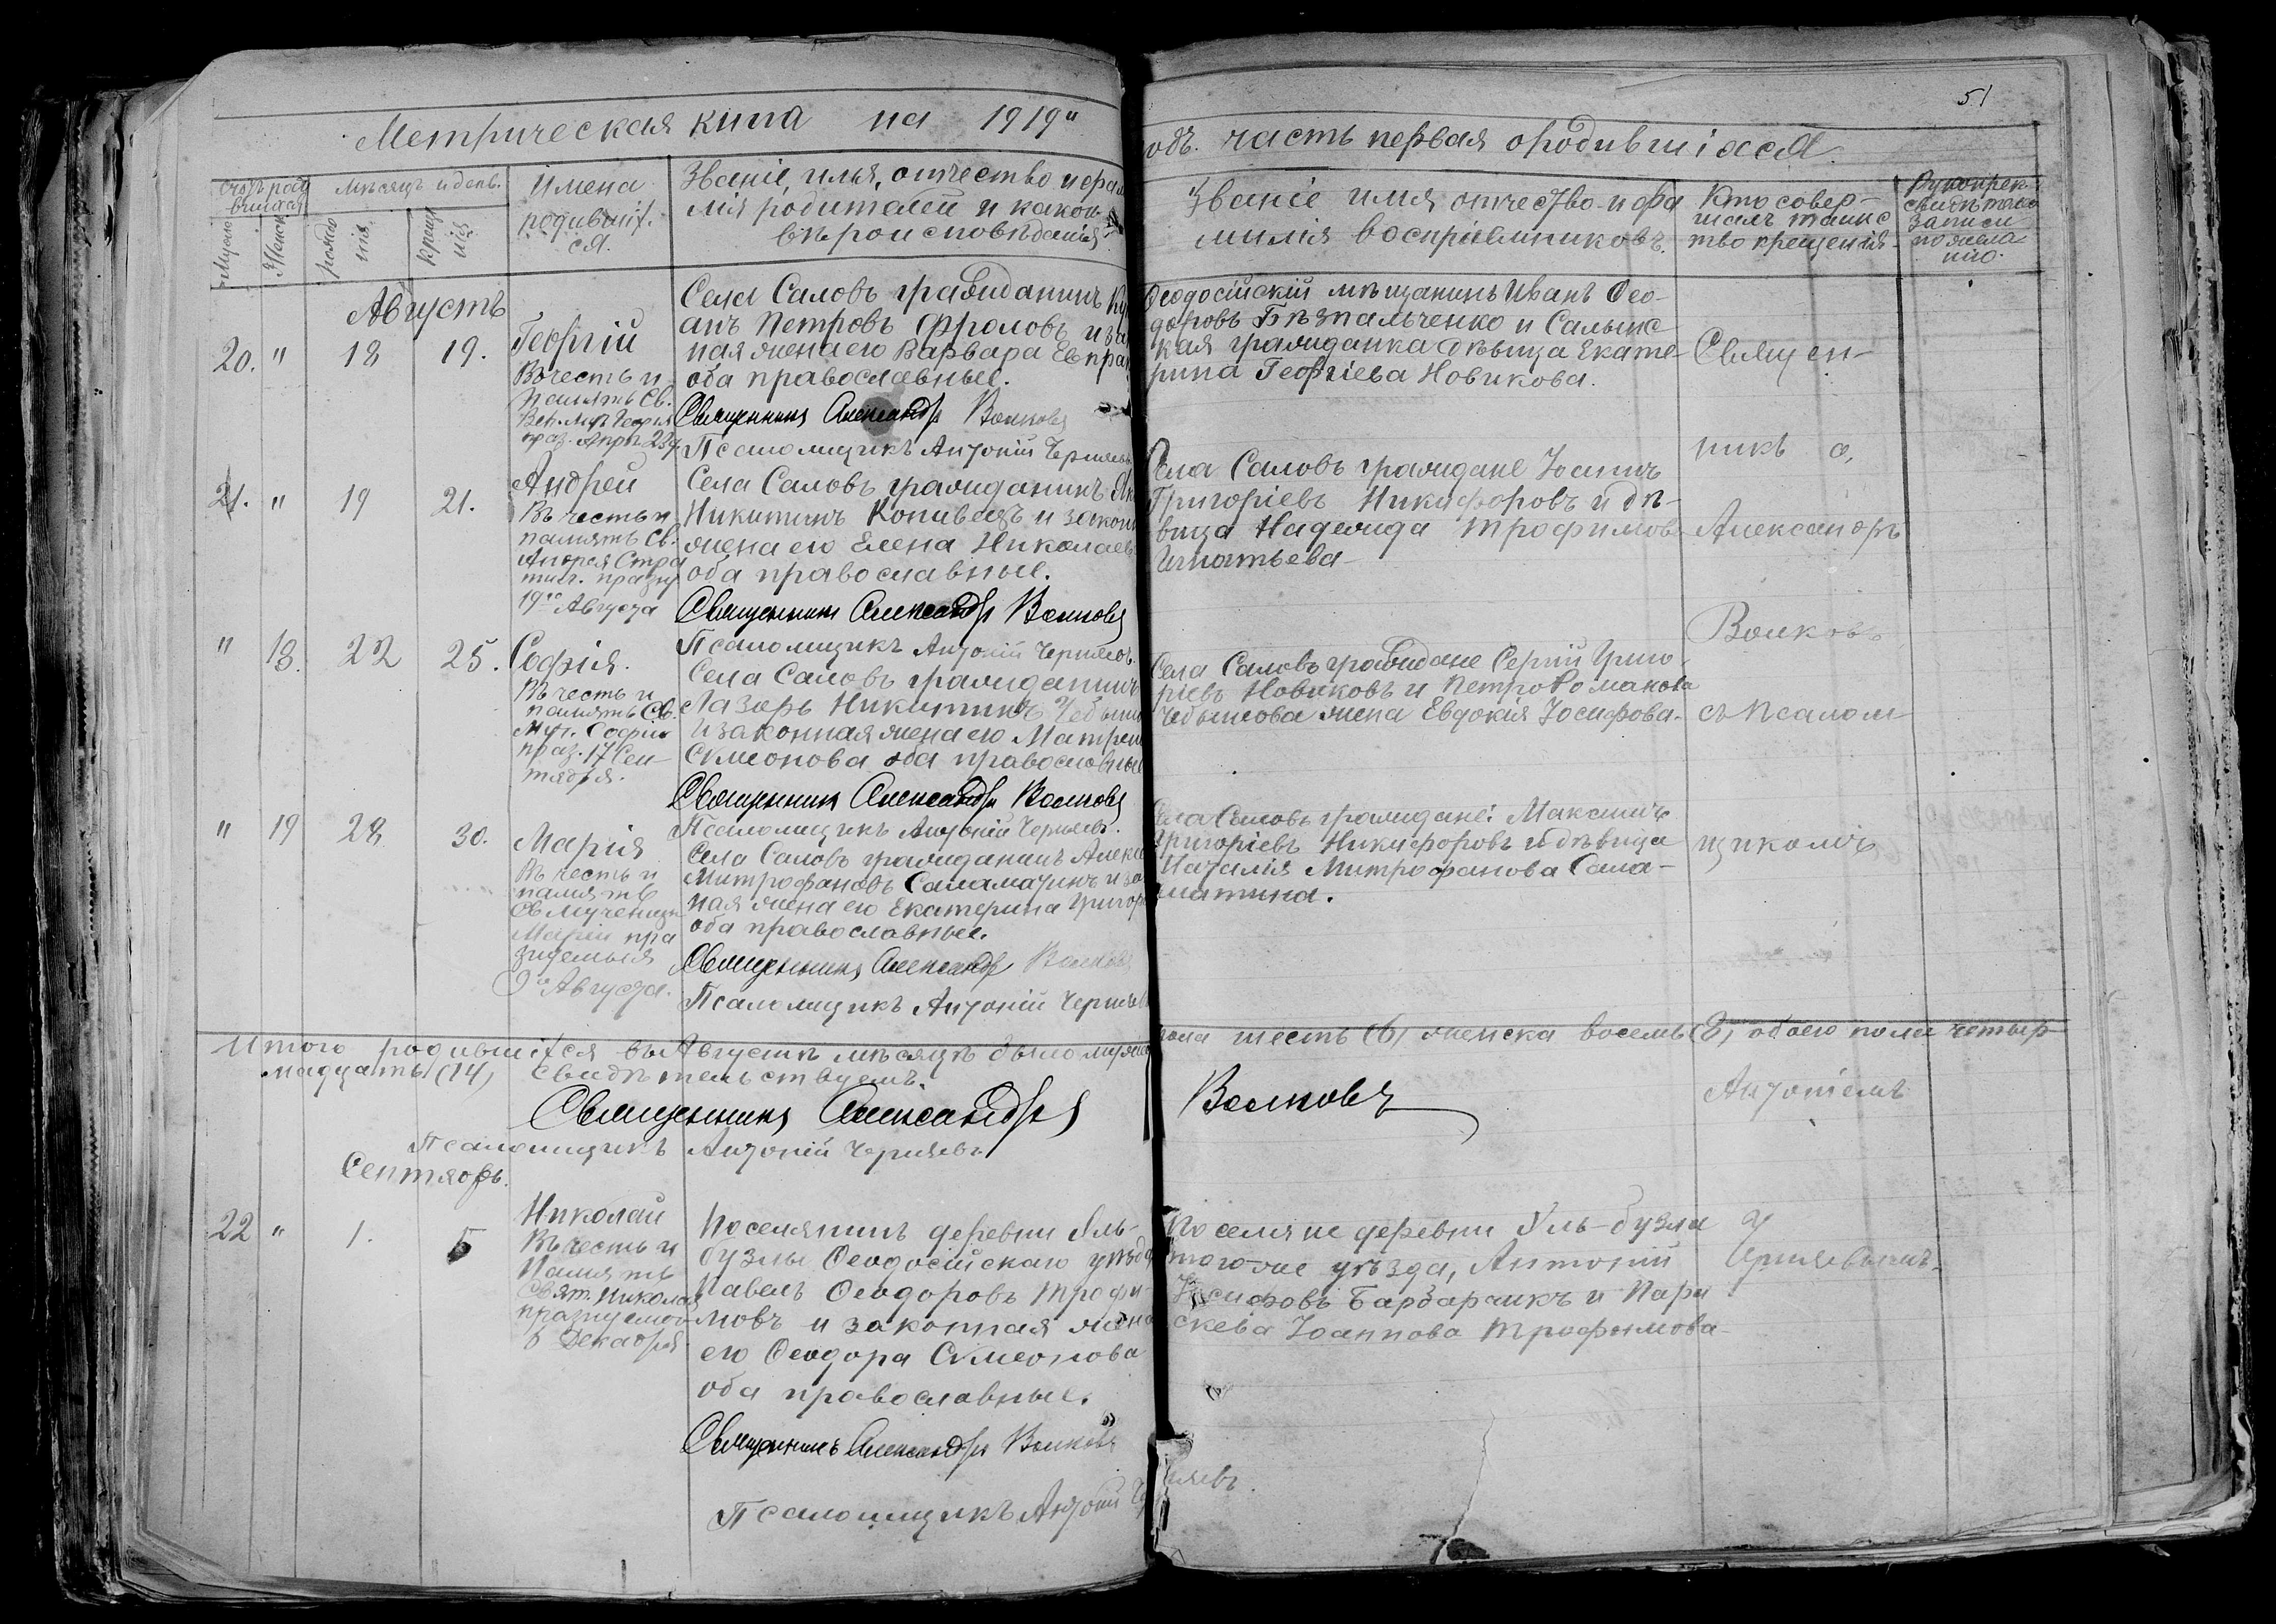 51
Метрическая книга на 1919й
одъ. часть первая о родившихся.
Мѣсяцъ и день.
Имена
родивших.
ся.
Званіе, имя, отчество и фами
лія родителей и какого
вѣроисповѣданія
Званіе имя отчество и фа
милія воспріемниковъ.
Кто совер-
шалъ таинс
тво крещенія
Рукоприк.
записи
по жела
нію.
Августъ
20. " 18 19.
Георгій
Въ честь и
память Св.
Села Саловъ гражданинъ
анъ Петровъ Фроловъ и за
ная жена его Варвара
оба православные.
Священникъ Александръ Волковъ
Псаломщикъ Антоній Черняевъ
Ѳеодосійскій мѣщанинъ Иванъ Ѳео-
доровъ Бѣзпальченко и Салынс
кая гражданка дѣвица Екате-
рина Георгіева Новикова.
21. " 19 21.
Андрей
Въ честь и
память Св.
Андрея Стра
тил. празд
19го Августа
Села Саловъ гражданинъ
Никитинъ Копивецъ и закон
жена его Елена Николаев
оба православные.
Священникъ Александръ Волковъ
Псаломщикъ Антоній Черняевъ.
Села Саловъ граждане Іоаннъ
Григоріевъ Никифоровъ и дѣ-
вица Надежда Трофимов
Игнатьева
" 18. 22 25.
Софія.
Въ честь и
память Св.
муч. Софіи
праз. 17 Сен
тября.
Села Саловъ гражданинъ
Лазарь Никитинъ
и законная жена его Матрен
Симеонова оба православные
Священникъ Александръ Волковъ
Псаломщикъ Антоній Черняевъ.
Села Саловъ граждане Сергій Григо
ріевъ Новиковъ и Петра Романова
Чебышова жена Евдокія Іосифова.
" 19 28 30.
Марія
Въ честь и
память
Св Мученицы
Маріи пра
зднемыя
9го Августа.
Села Саловъ гражданинъ Алекс
Митрофановъ Саламатинъ и за
ная жена его Екатерина Григор
оба православные.
Священникъ Александръ Волковъ
Псаломщикъ Антоній Черняевъ
Села Саловъ граждане: Максимъ
Григоріевъ Никифоровъ и дѣвица
Наталія Митрофанова Сала-
матина.
Священ-
никъ о,
Александръ
Волковъ
съ псалом-
щикомъ
Антоніемъ
Черняевымъ.
Итого родившихся въ Августѣ мѣсяцѣ было мужс
пола шесть (6) женска восемь (8) обоего пола четыр
надцать (14) свидѣтельствуемъ.
Священникъ Александръ Волковъ
Псаломщикъ Антоній Черняевъ
Сентябрь.
22 " 1. 5
Николай
Въ честь и
память
Свят. Николая
празднемаго
6 Декабря
Поселянинъ деревни Аль-
бузлы Ѳеодосійскаго уѣзда
Павелъ Ѳеодоровъ Трофи-
мовъ и законная жена
его Ѳеодора Симеонова
оба православные.
Священникъ Александръ Волковъ
Псаломщикъ Антоній Черняевъ.
Поселяне деревни
того-же уѣзда, Антоній
Іосифовъ Барбарчикъ и Пара
скева Іоаннова Трофимова